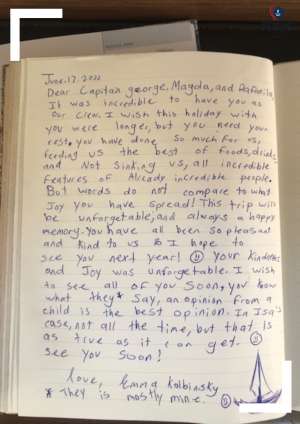 June.17.2022
Dear Captian george, Magda, and Rafaella,
It was incredible to have you as
our crew. I wish this holiday with
you were longer, but you need your
rest, you have done so much for us,
feeding us the best of foods, drinks,
and Not Sinking us, all incredible
features of Already incredible people.
But words do not compare to what
Joy you have spread! This trip will
be unforgetable, and always a happy
memory. You have all been so pleasant
and kind to us & I hope to
see you next year! Your kindness
and Joy was unforgetable. I wish
to see all of you soon, you know
what they* say, an opinion from a
child is the best opinion. In Isa's
case, not all the time, but that is
as true as it can get.
see you soon!
Love, Emma Kolbinsky
* They is mostly mine.